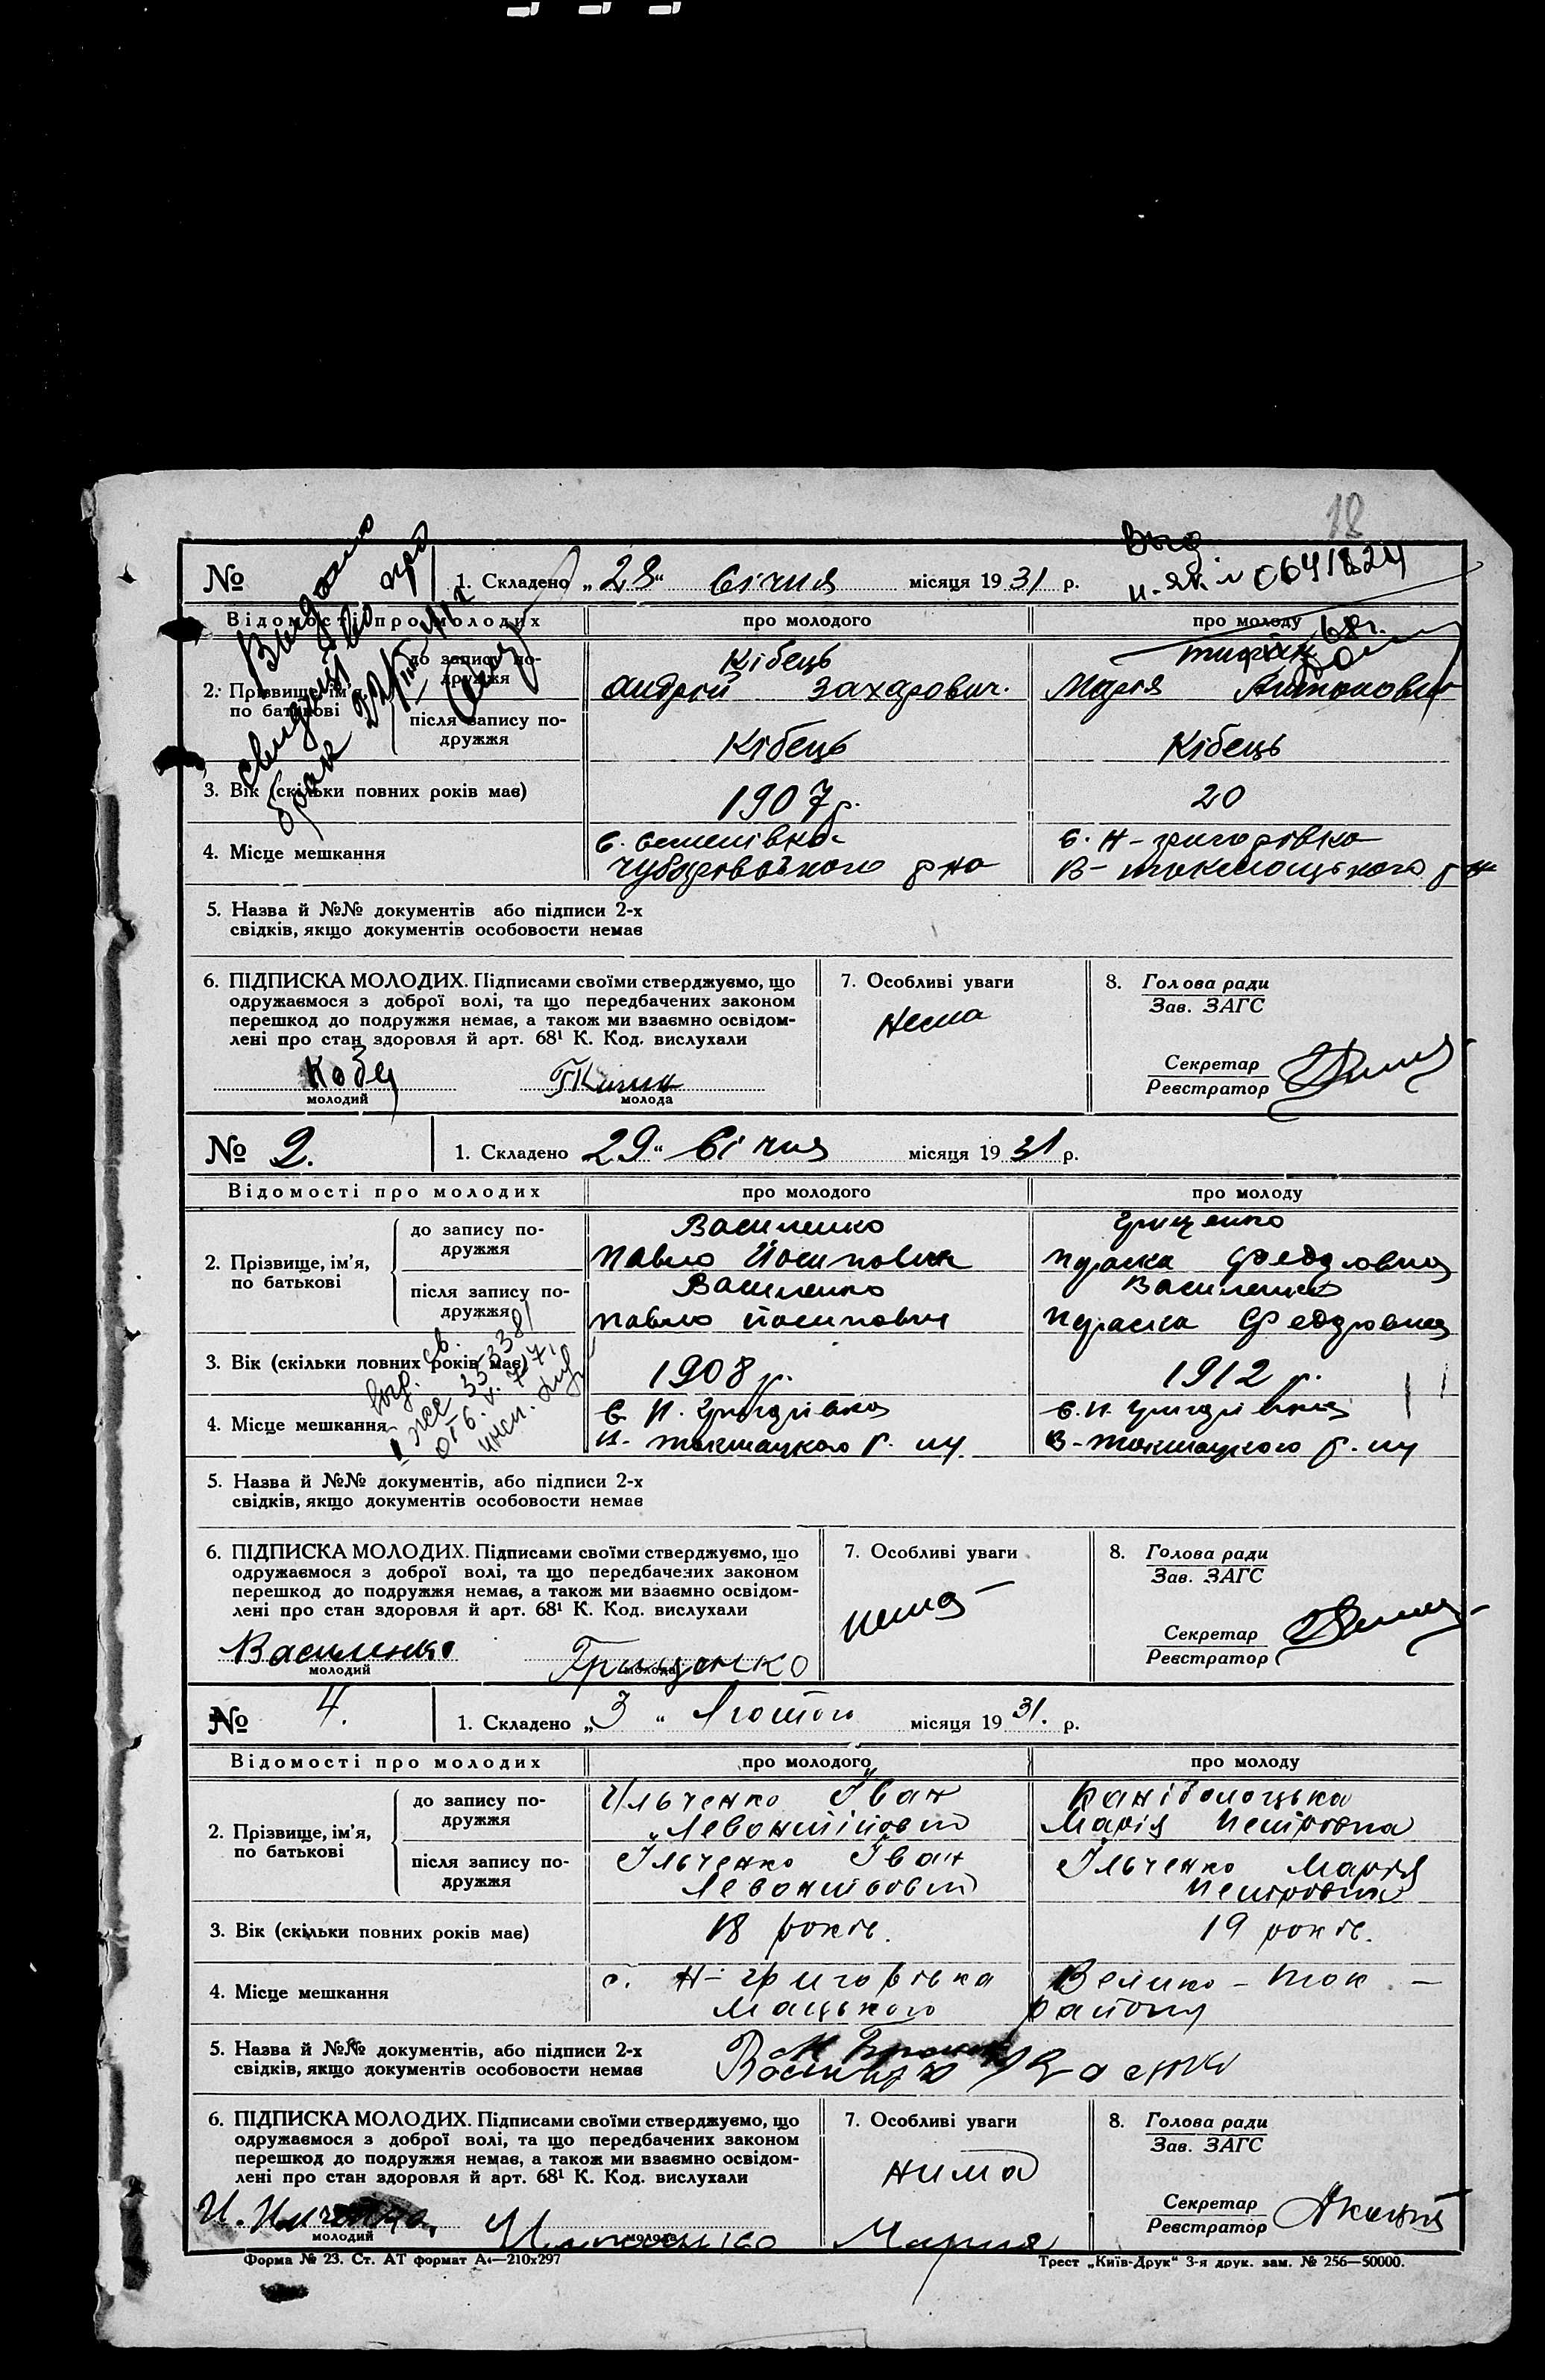 18
Выд
№ 1. Складено „28“ січня місяця 1931 р.
Відомості про молодих про молодого про молоду
до запису подружжя
Кібець
2. Прізвище, ім'я, по батькові
Андрій Захарович. Марія
після запису по-
дружжя
Кібець Кібець
3. Вік (скільки повних років має) 1907 р. 20
4. Місце мешкання
с. Семенівка с. Н-григорівка
Чубарівського р на В-токмацького р н
5. Назва й №№ документів або підписи 2-х
свідків, якщо документів особовости немає
6. ПІДПИСКА МОЛОДИХ. Підписами своїми стверджуємо, що
одружаємося з доброї волі, та що передбачених законом
перешкод до подружжя немає, а також ми взаємно освідом-
лені про стан здоровля й арт. 68¹ К. Код. вислухали
молодий молода
7. Особливі уваги
Нема
8. Голова ради
Зав. ЗАГС
Секретар
Реєстратор
№ 2. 1. Складено 29“ січня місяця 1931 р.
Відомості про молодих про молодого про молоду
до запису по-
дружжя
Василенко Грищенко
2. Прізвище, ім'я,
по батькові
Павло Йосипович Параска Федоровна
після запису по-
дружжя
Василенко Василенко
павло йосипович Параска Федоровна
3. Вік (скільки повних років має) 1908 р. 1912 р.
4. Місце мешкання
с. Н. Григорівка с. Н. Григорівка
В-токмацкого р.
5. Назва й №№ документів, або підписи 2-х
свідків, якщо документів особовости немає
6. ПІДПИСКА МОЛОДИХ. Підписами своїми стверджуємо, що
одружаємося з доброї волі, та що передбачених законом
перешкод до подружжя немає, а також ми взаємно освідом-
лені про стан здоровля й арт. 68¹ К. Код. вислухали
Василенко Грищенко
молодий молода
7. Особливі уваги
нема
8. Голова ради
Зав. ЗАГС
Секретар
Реєстратор
№ 4. 1. Складено „3“ Лютого місяця 1931. р.
Відомості про молодих про молодого про молоду
до запису по-
дружжя
Ильченко Іван
2. Прізвище, ім'я,
по батькові
Марія Петровна
після запису по-
дружжя
Ільченко Іван Ільченко Марія
Петровна
3. Вік (скільки повних років має) 18 років. 19 років.
4. Місце мешкання
с. Н-григорівка Велико-Ток-
мацького району
5. Назва й №№ документів, або підписи 2-х
свідків, якщо документів особовости немає
6. ПІДПИСКА МОЛОДИХ. Підписами своїми стверджуємо, що
одружаємося з доброї волі, та що передбачених законом
перешкод до подружжя немає, а також ми взаємно освідом-
лені про стан здоровля й арт. 68¹ К. Код. вислухали
молодий молода
Мария
7. Особливі уваги
нима
8. Голова ради
Зав. ЗАГС
Секретар
Реєстратор
Форма № 23. Ст. АТ формат А₄—210х297 Трест „Київ-Друк“ 3-я друк. зам. № 256—50000.